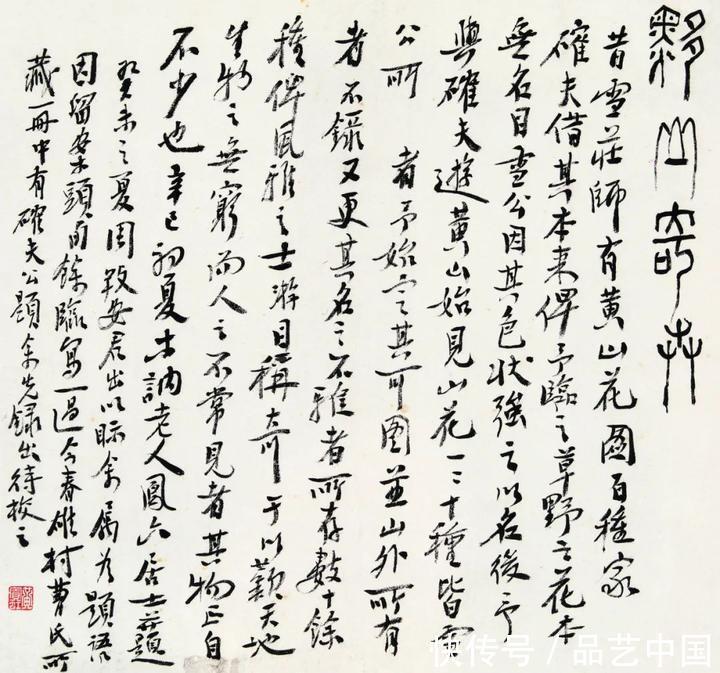 黟山奇卉
昔雪莊師有黃山花圖百種家
確夫借其本来俾予臨之草野之花本
無名目雪公因其色状強之以名後予
與確夫遊黃山始見山花一二十種皆雪
公所 者予始定其可圖並山外所有
者不錄又更其名之不雅者所存數十餘
種俾風雅之士游目稱奇于以歎天地
生物之無窮而人之不常見者其物正自
不少也辛巳初夏木訥老人鳳六居士並題
癸未之夏周 君出以眎余属為題語
因留案頭 餘臨寫一過今春雄村曹氏所
藏一冊中有確夫公題余先録出待校之
快传号 / 品艺中国